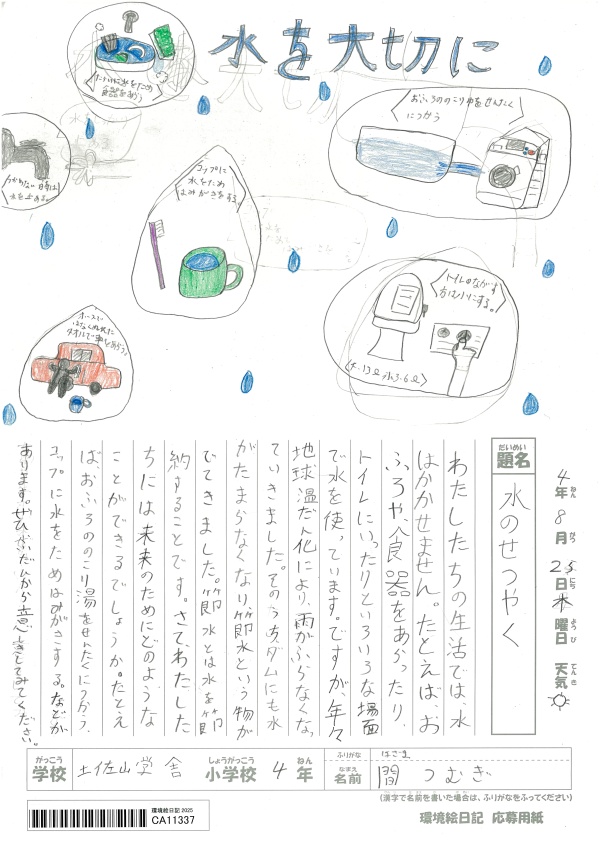 水を大切に
だいいに水をため
食器をあらう
つかわない時は
水を止める。
コップに
水をため
はみがきをする。
おふろののこり湯をせんたく
につかう
トイレのながす
方は小にする。
ホースで
はなくぬれた
タオルで車をあらう。
4年8月25日木曜日 天気
ねん がつ にち ようび てんき
だいめい
題名 水のせつやく
わたしたちの生活では、水
はかかせません。たとえは、お
ふろや食器をあらったり、
トイレにいったりといろいろな場面
で水を使っています。ですが、年々
地球温だん化により、雨がふらなくなっ
ていきました。そのうちダムにも水
がたまらなくなり節水という物が
でてきました。節水とは水を節
約することです。さて、わたした
ちには未来のためにどのような
ことができるでしょうか。たとえ
ば、おふろののこり湯をせんたくにつかう、
コップに水をためはみがきする。などが
あります。ぜひふだんから意識してみてください。
がっこう しょうがっこう ねん ふりがな はざま
学校 土佐山学舎 小学校 4年 なまえ 名前 間 つむぎ
(漢字で名前を書いた場合は、ふりがなをふってください)
環境絵日記 2025
CA11337
環境絵日記 応募用紙